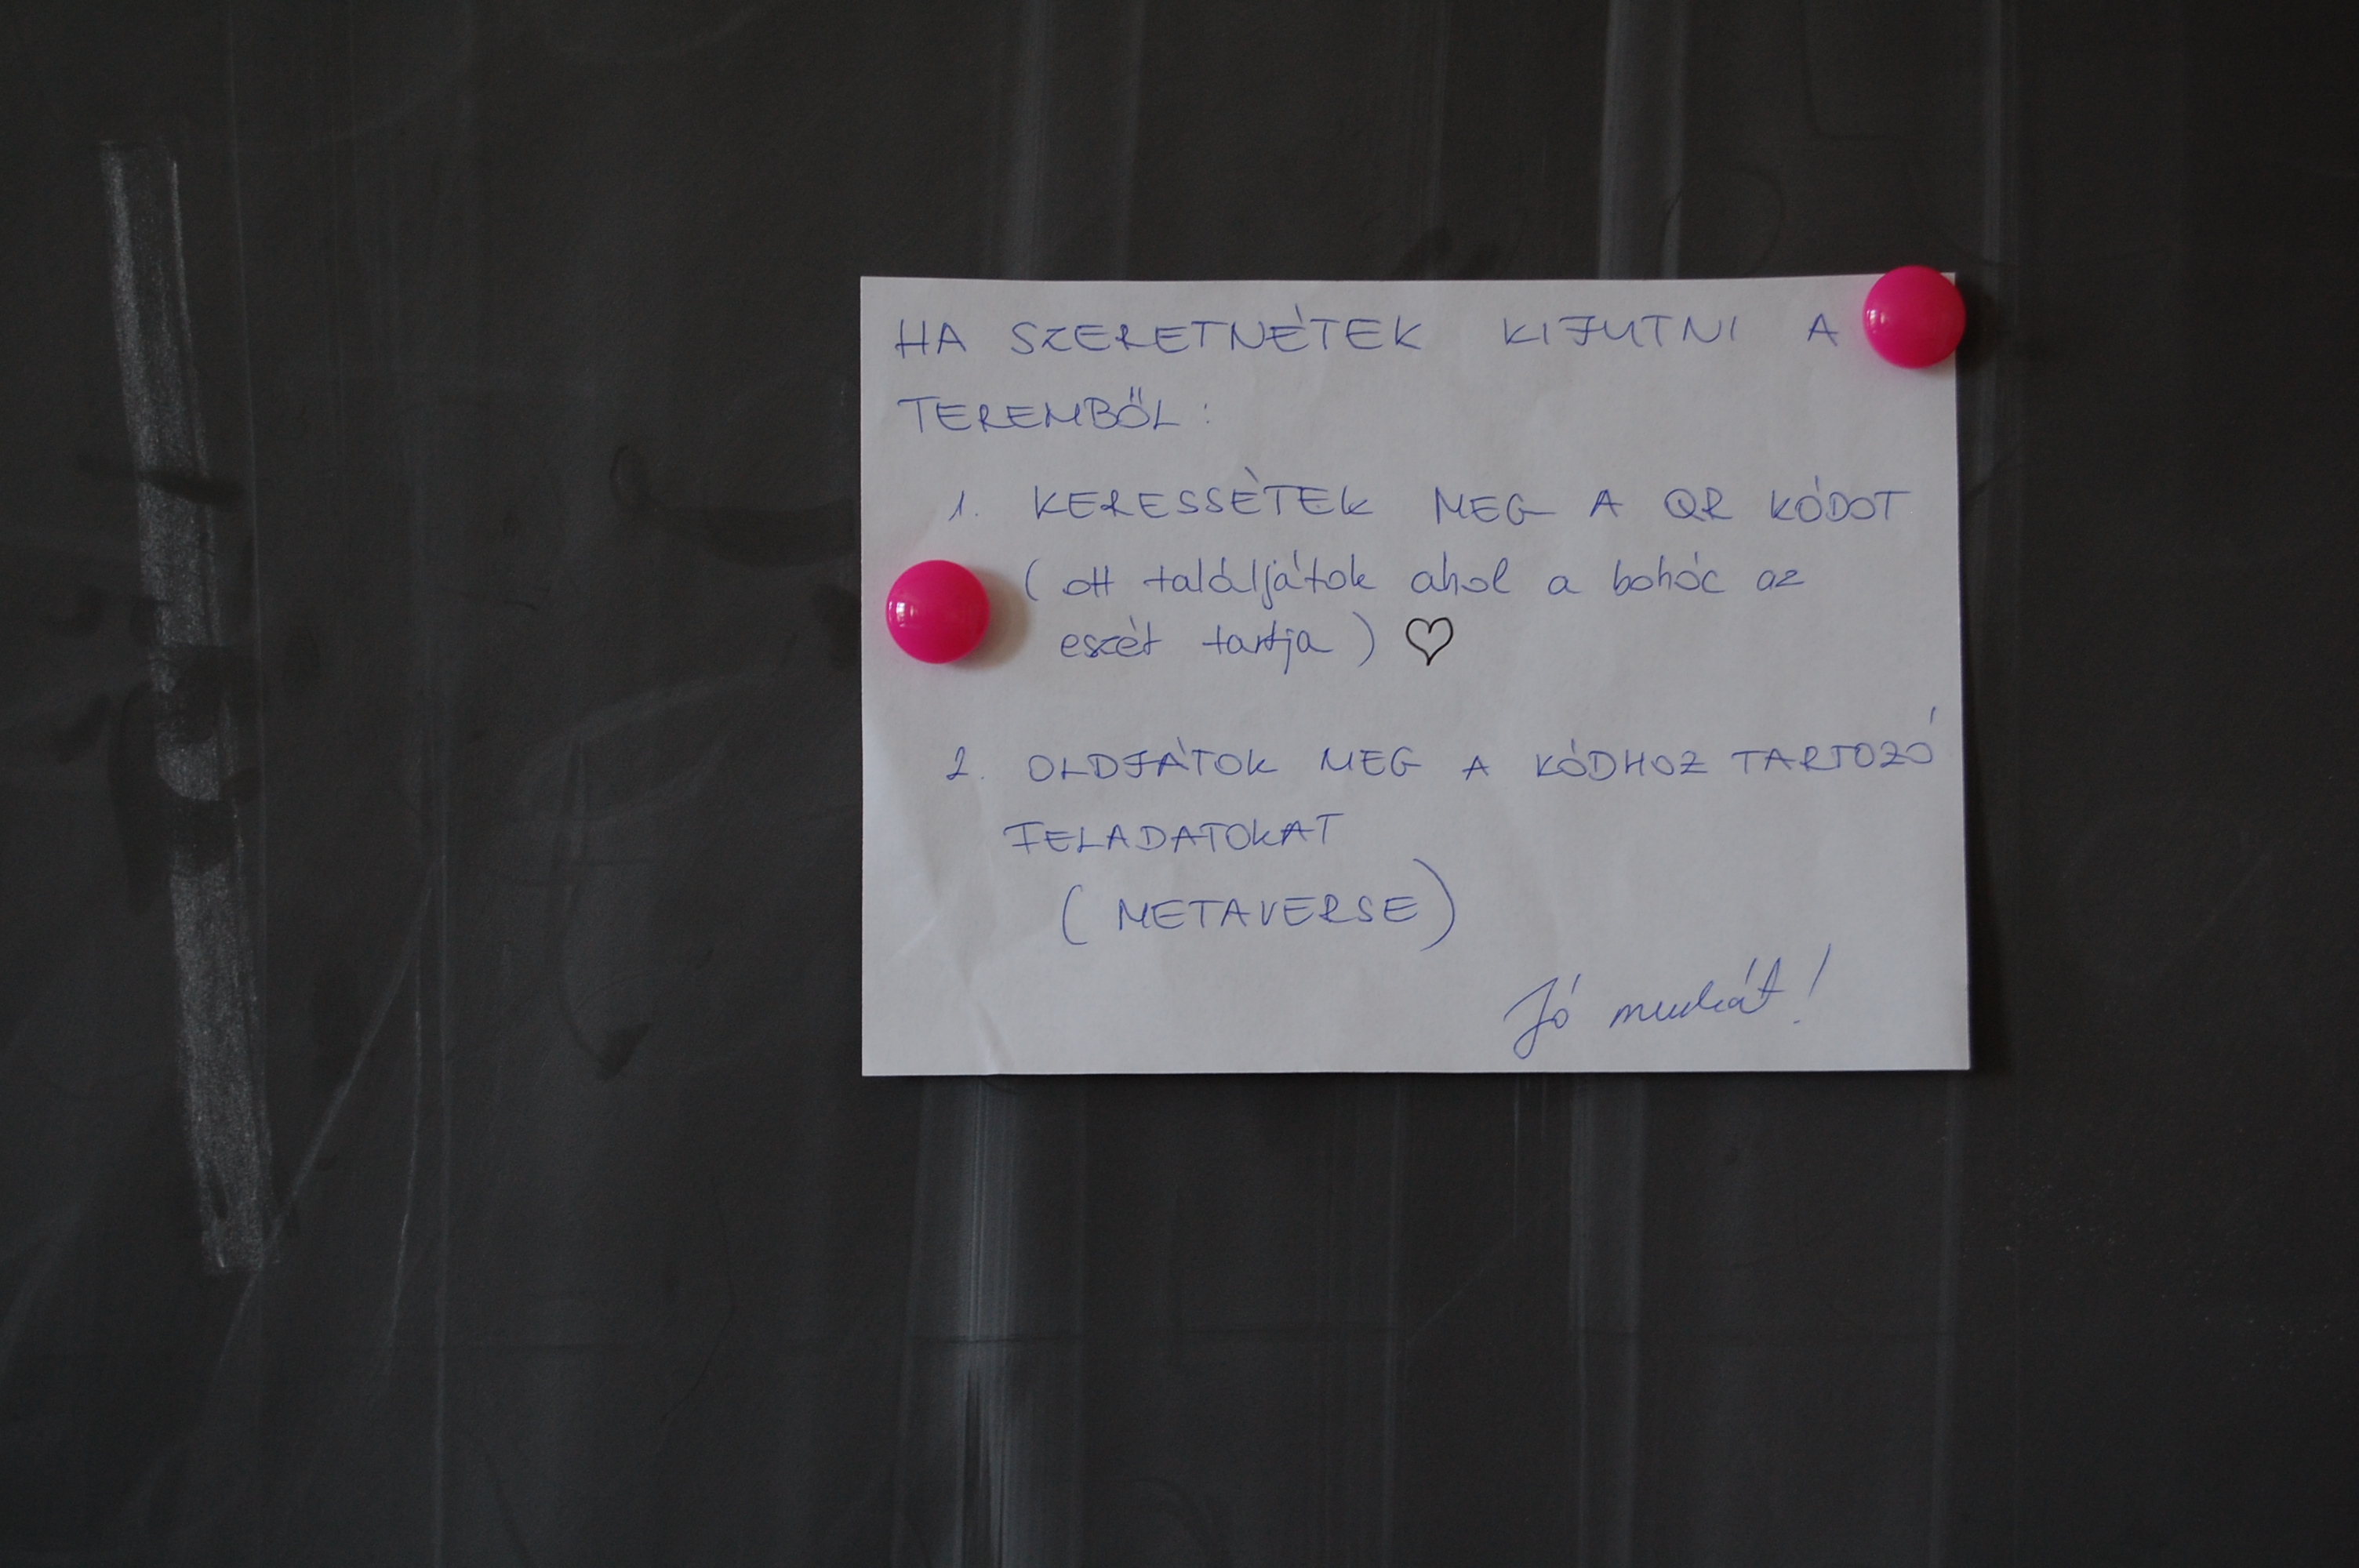 HA SZERETNÉTEK KIJUTNI A
TEREMBŐL:
1. KERESSÉTEK MEG A QR KÓDOT
(ott találjátok ahol a bohóc az
eszét tartja) ♡
2. OLDJÁTOK MEG A KÓDHOZ TARTOZÓ
FELADATOKAT
(METAVERSE)
Jó munkát!